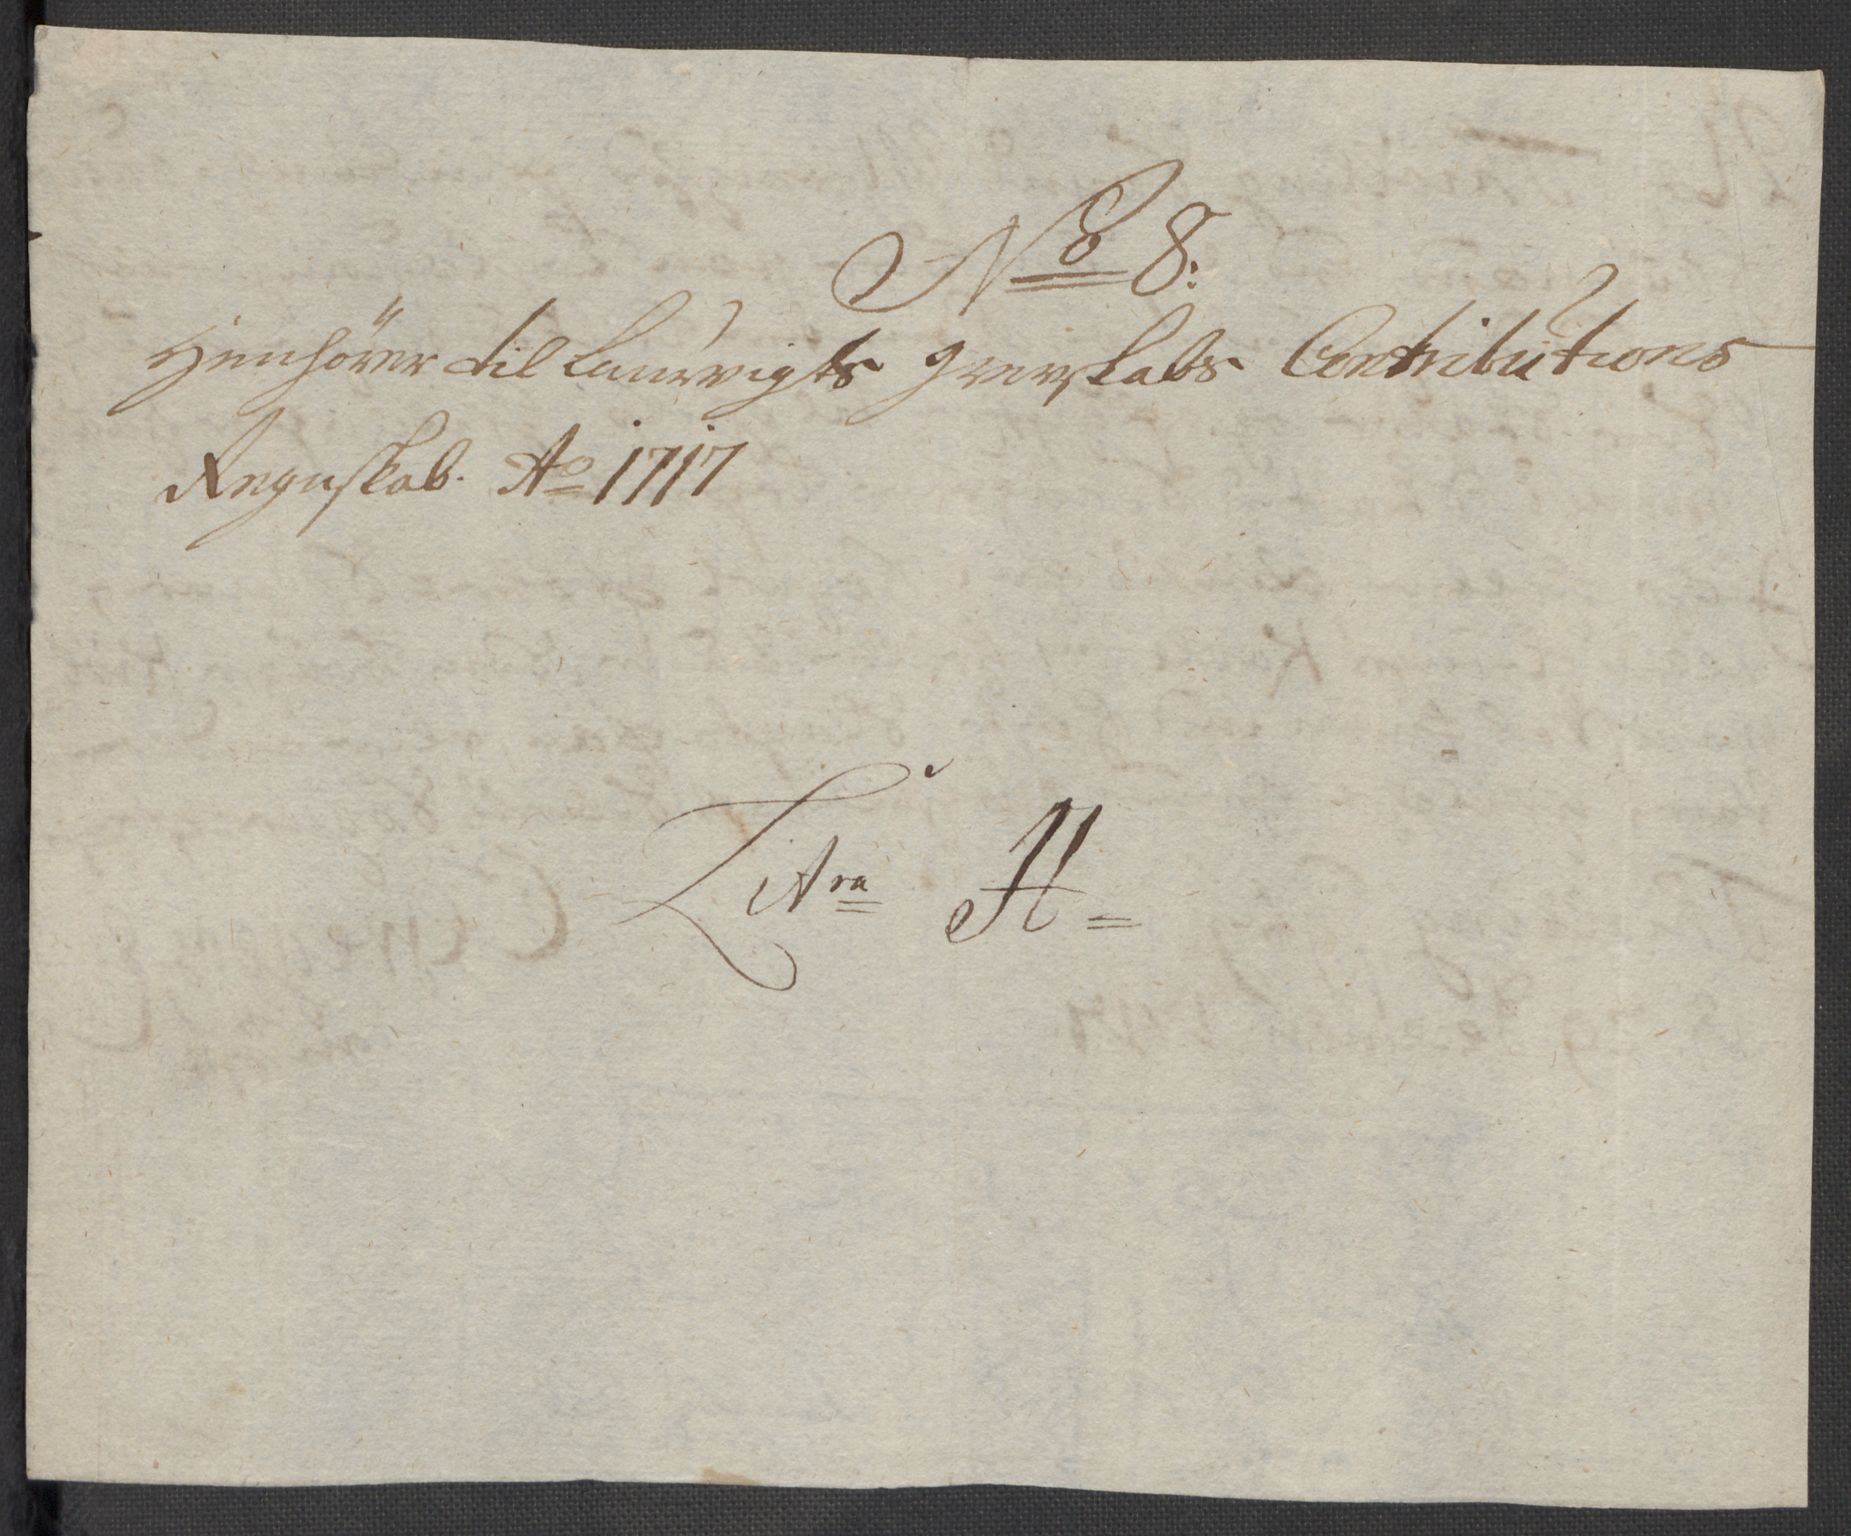 No 8:
Henhörer til Laurvigts Grevskabs Contributions
Regnskab. Ao 1717
Litra A